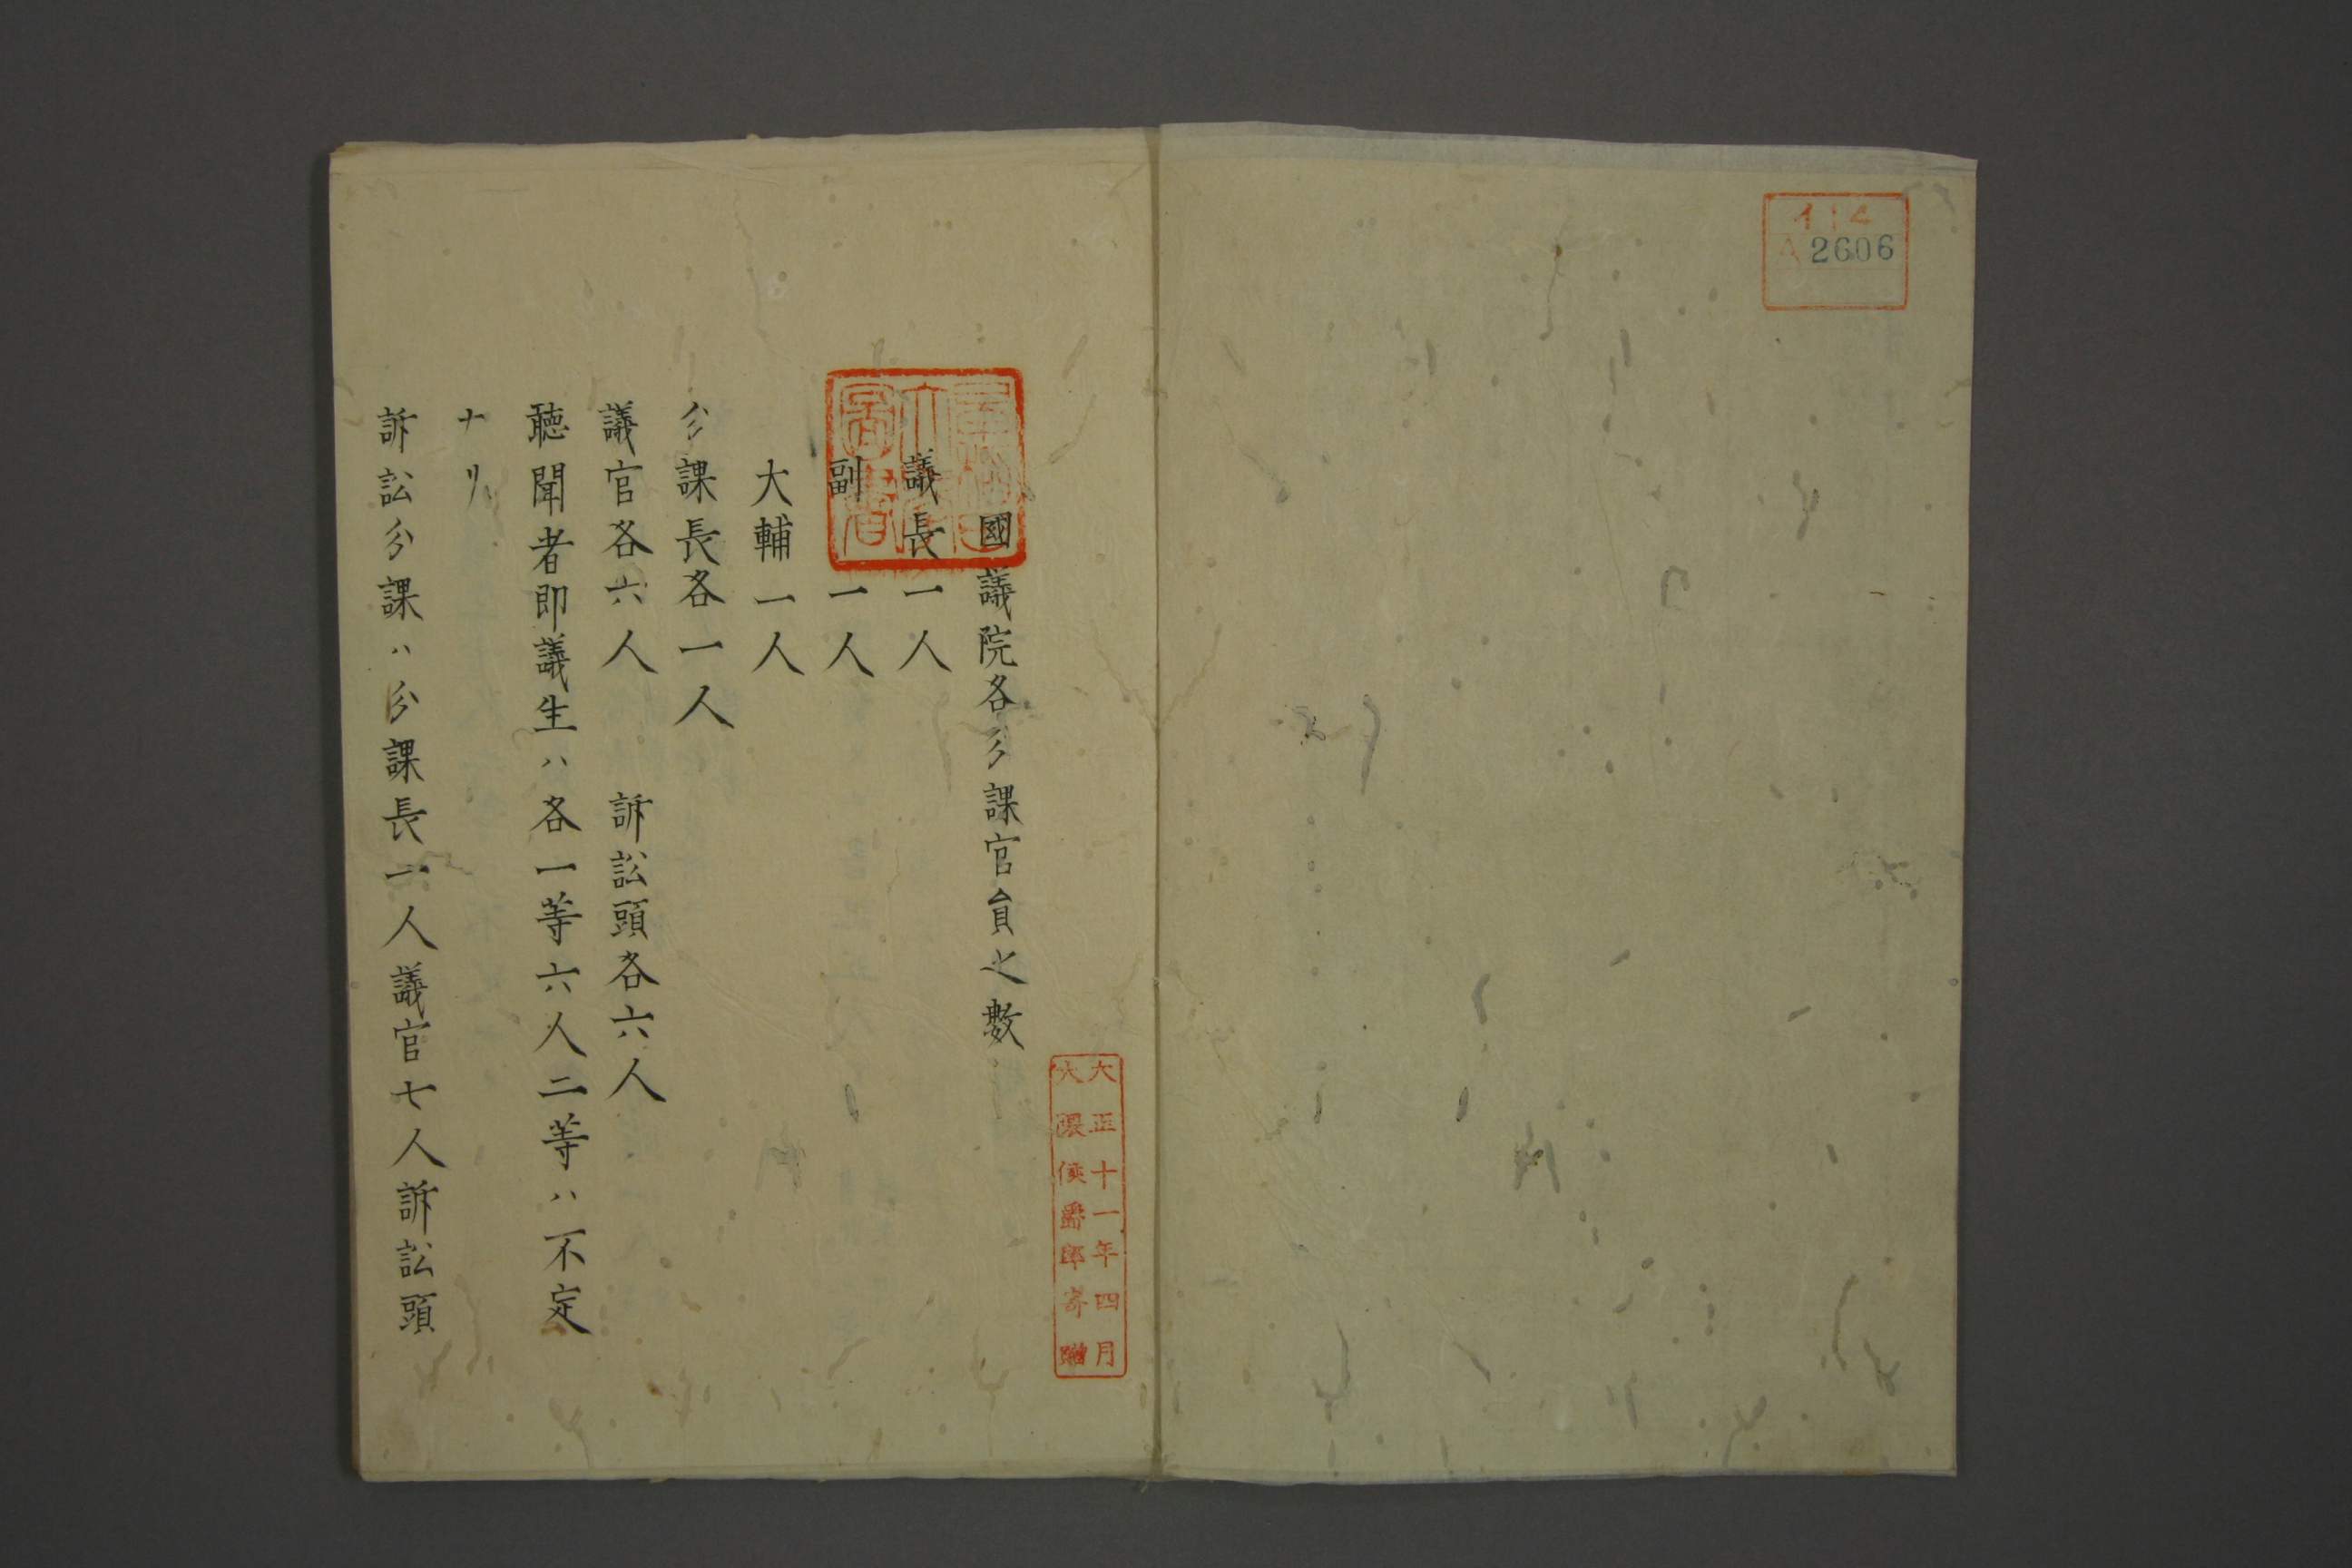 イ14
A2606
國議院各分課官員之數
議長一人
副一人
大輔一人
分課長各一人
議官各六人 訴訟頭各六人
聴聞者即議生ハ各一等六人二等ハ不定
ナリ
訴訟分課ハ分課長一人議官七人訴訟頭
大正十一年四月
大隈侯爵邸寄贈